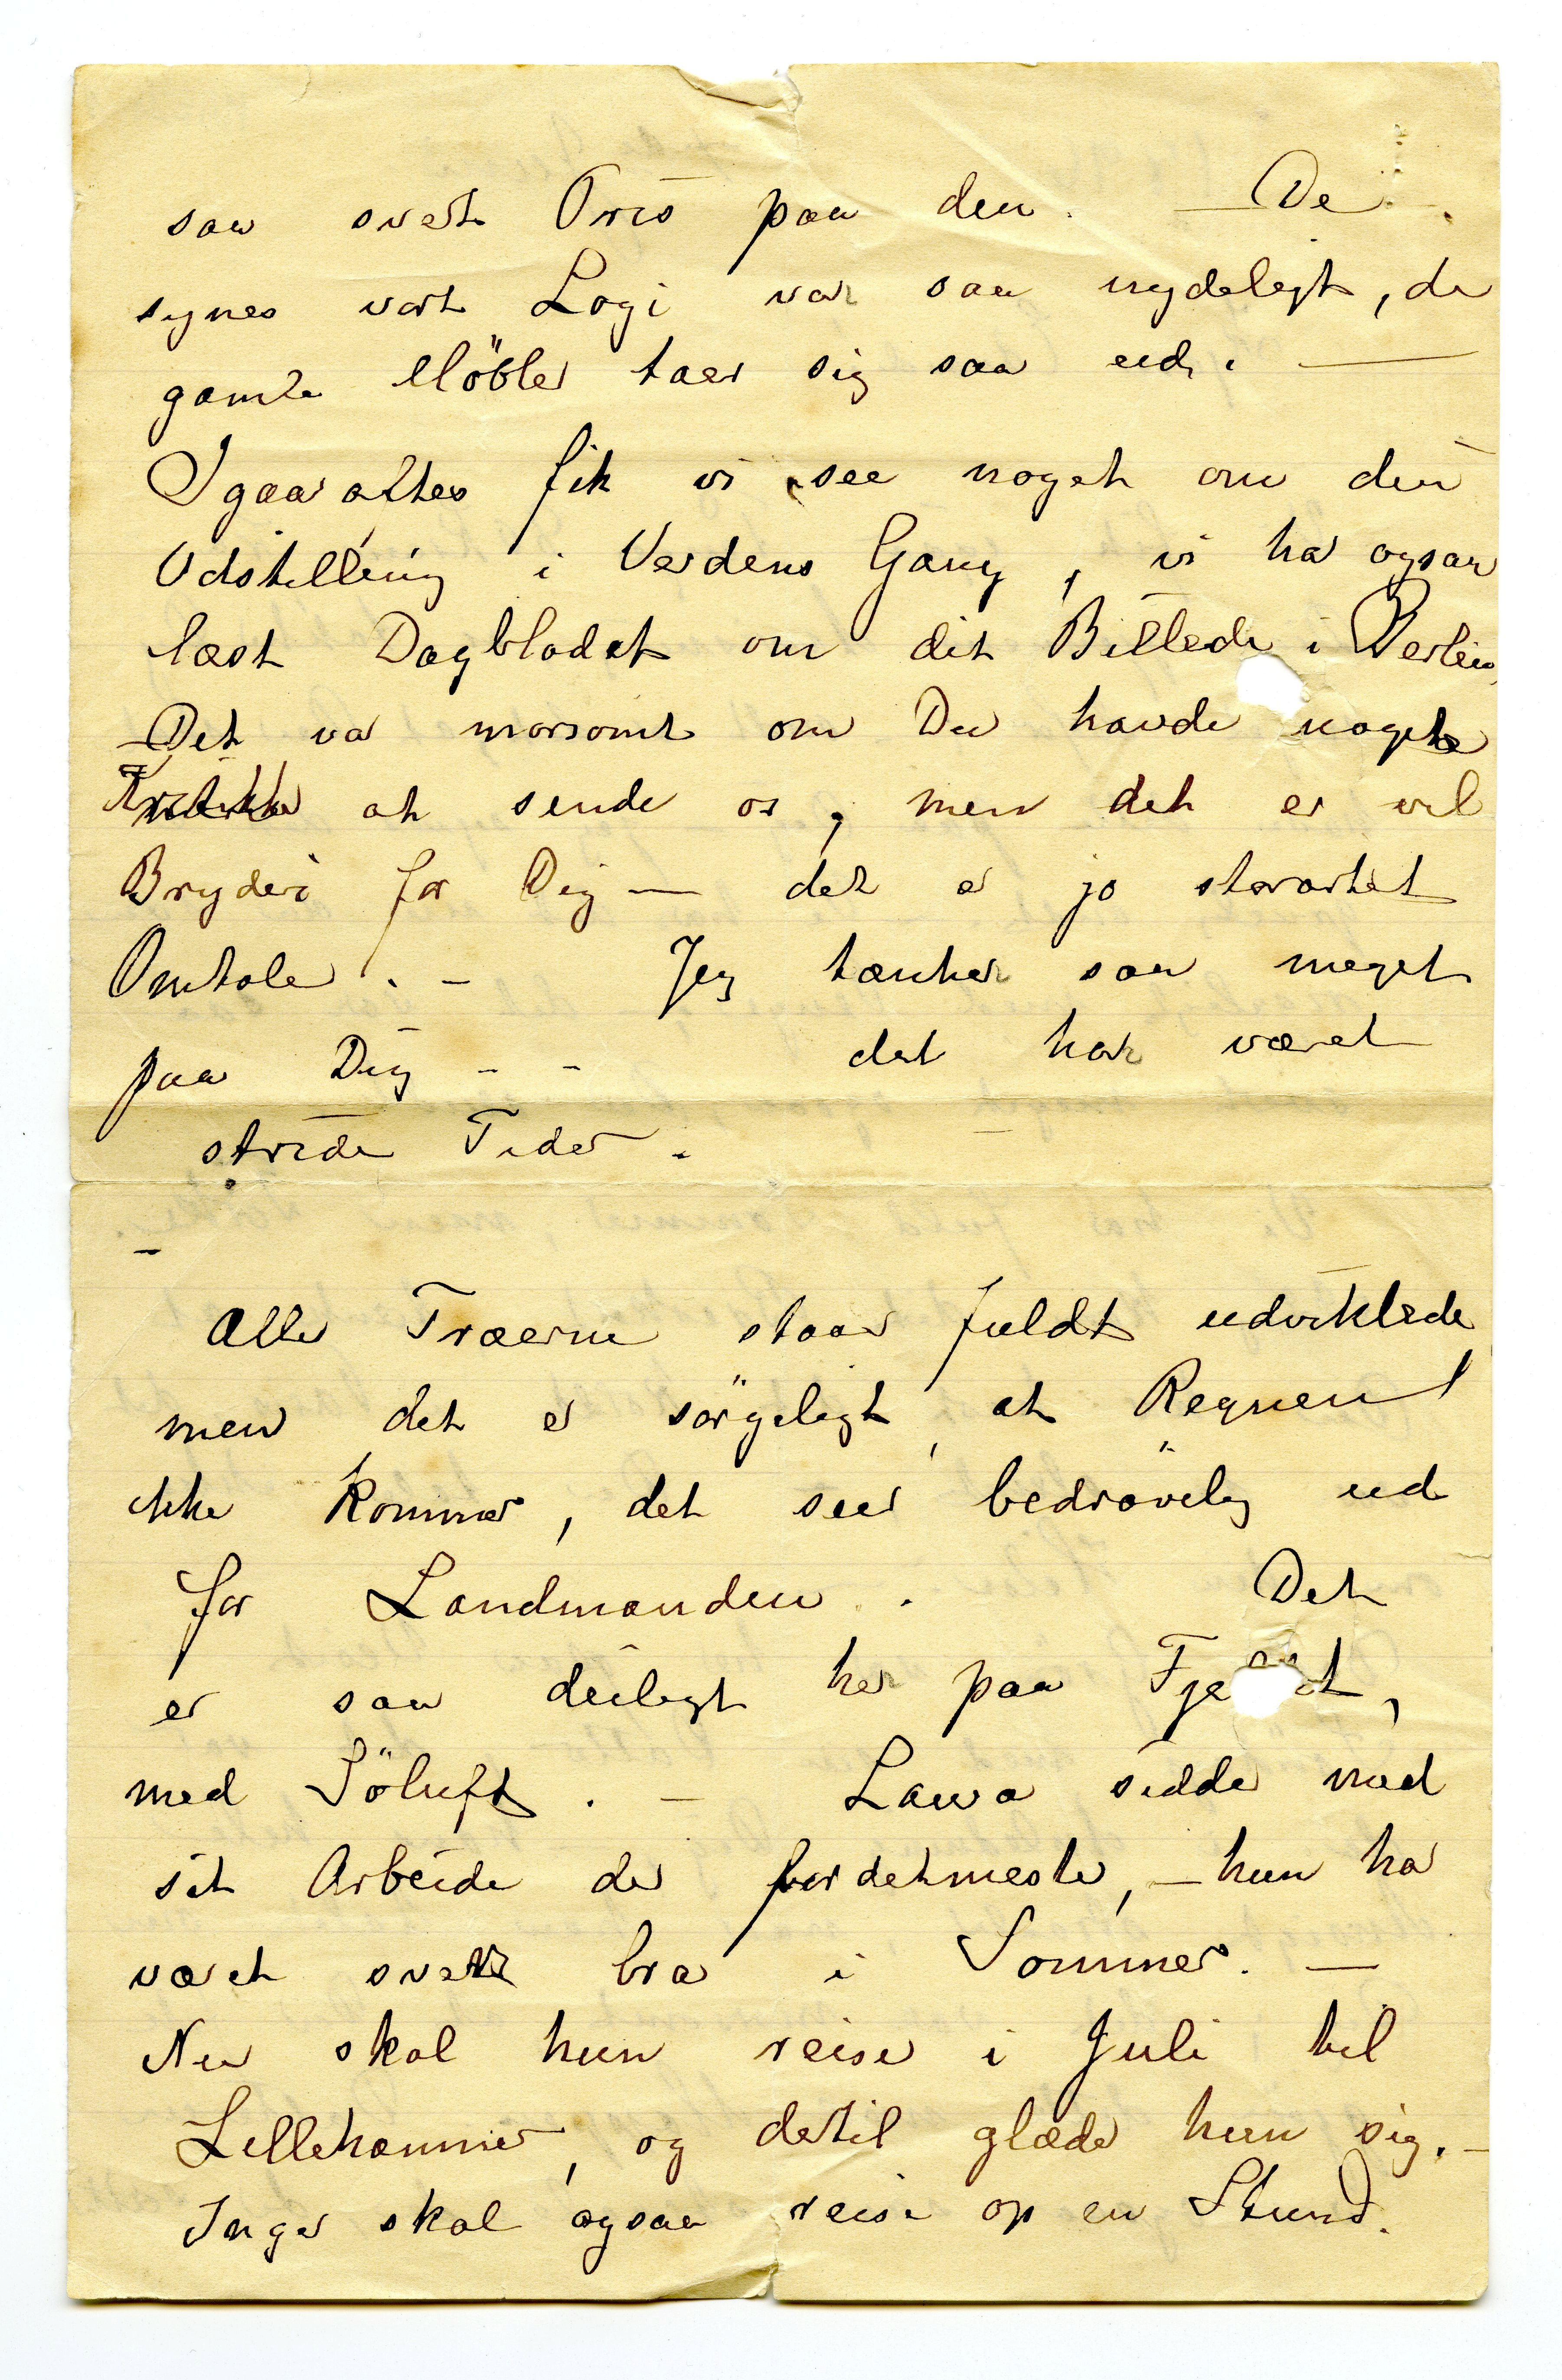 saa svært Pris paa den. — De
synes vort Logi var saa nydeligt, de
gamle Möbler taer sig saa ud. —
Igaar aftes fik vi see noget om din
Udstilling i Verdens Gang, vi har ogsaa
læst Dagbladet om dit Billede i Berlin,
– Det var morsomt om Du havde noget
Kritikker at sende os, men det er vel
Bryderi for Dig — det er jo storartet
Omtale. – Jeg tænker saa meget
paa Dig – – det har været
stride Tider.
–
Alle Træerne staar fuldt udviklede
men det er sörgeligt, at Regnen
ikke kommer, det seer bedröveligt ud
for Landmanden. Det
er saa deiligt her paa Fje dt,
med Söluft. – Laura sidder med
sit Arbeide der for det meste, – hun har
været svært bra i Sommer. —
Nu skal hun reise i Juli til
Lillehammer, og dertil glæder hun sig. –
Inger skal ogsaa reise op en Stund.